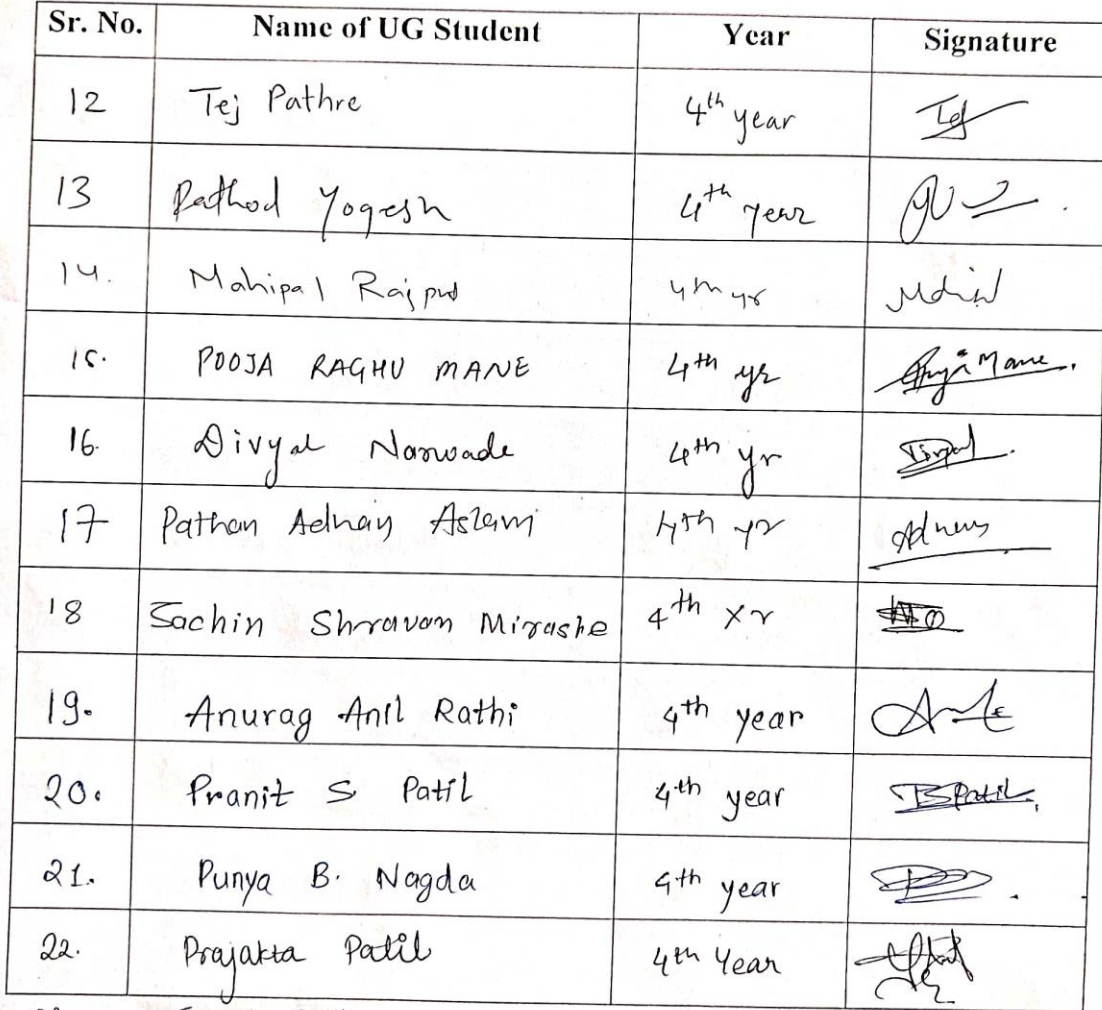 Sr. No. Name of UG Student Year Signature
12 Tej Pathre 4th year Tej
13 Rathod Yogesh 4th year
14. Mahipal Rajput 4th yr
15. POOJA RAGHU MANE 4th yr Pooja Mane.
16. Divyal Narwade 4th yr
17 Pathan Adnan Aslam 4th yr Adnan
18 Sachin Shravan Mirashe 4th Yr
19. Anurag Anil Rathi 4th year
20. Pranit S Patil 4th year Patil
21. Punya B. Nagda 4th year
22. Prajakta Patil 4th Year